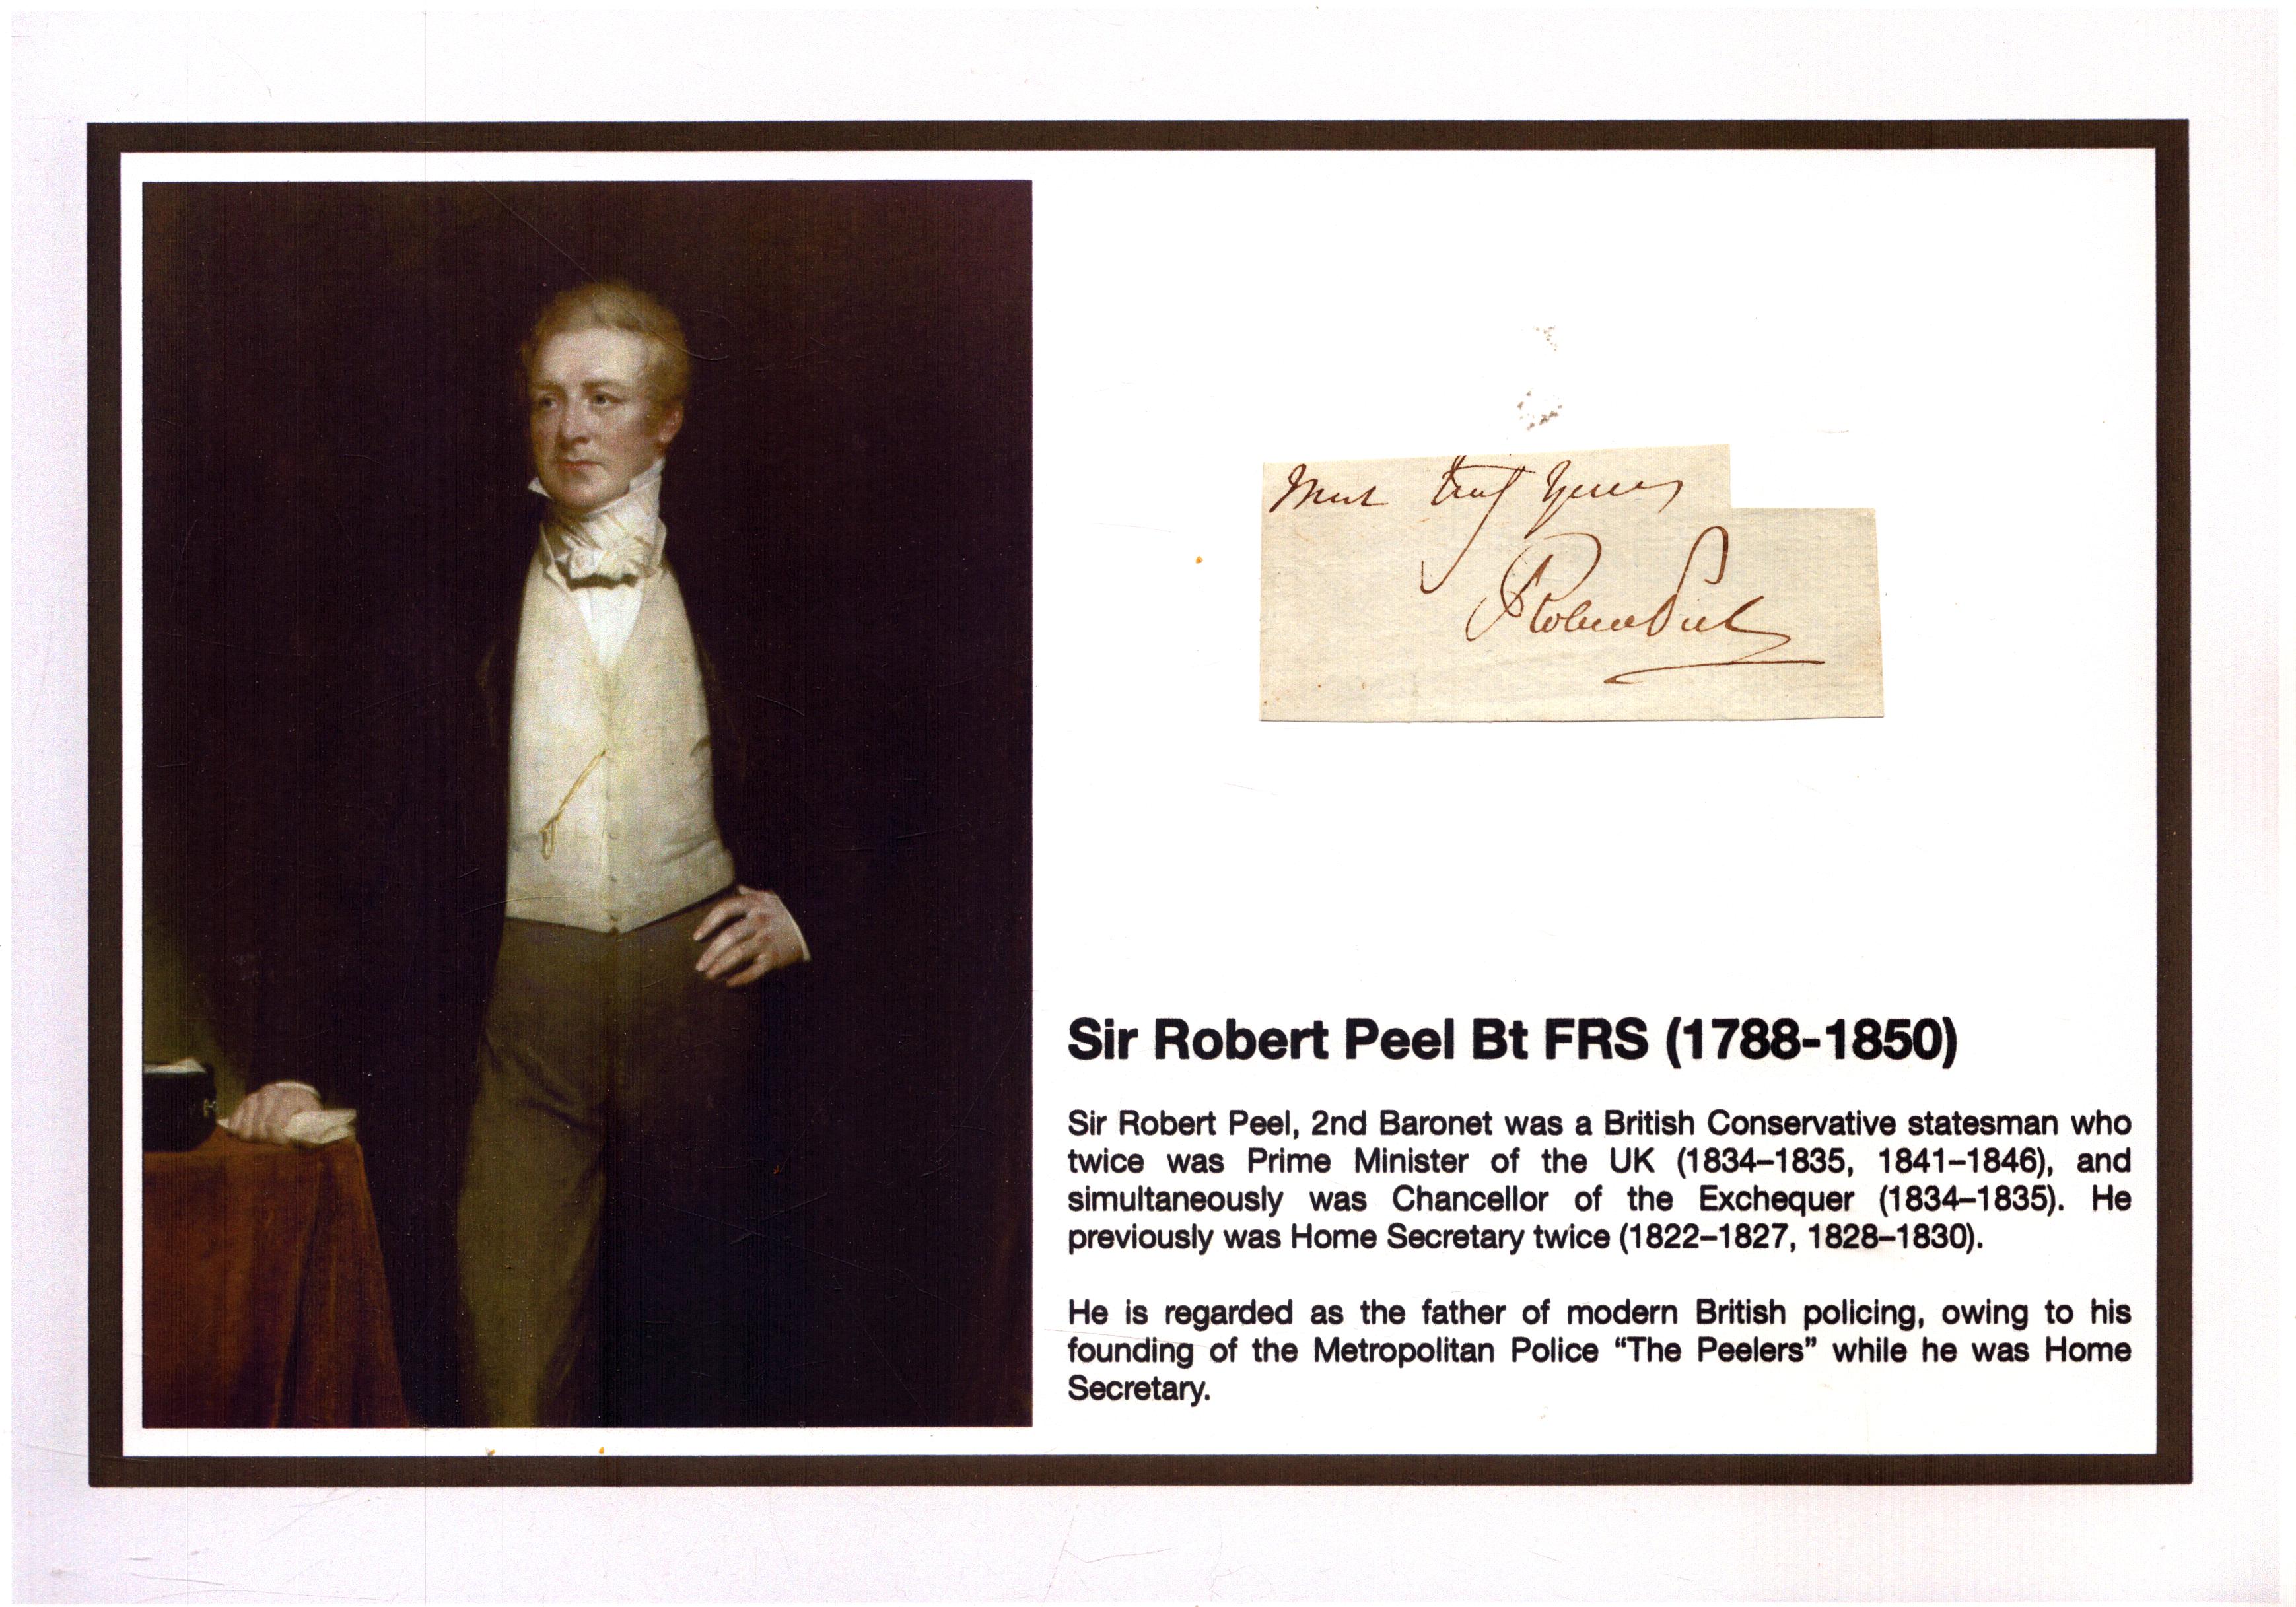 Most truly Yours
Robert Peel
Sir Robert Peel Bt FRS (1788-1850)
Sir Robert Peel, 2nd Baronet was a British Conservative statesman who
twice was Prime Minister of the UK (1834–1835, 1841–1846), and
simultaneously was Chancellor of the Exchequer (1834–1835). He
previously was Home Secretary twice (1822–1827, 1828–1830).
He is regarded as the father of modern British policing, owing to his
founding of the Metropolitan Police “The Peelers” while he was Home
Secretary.